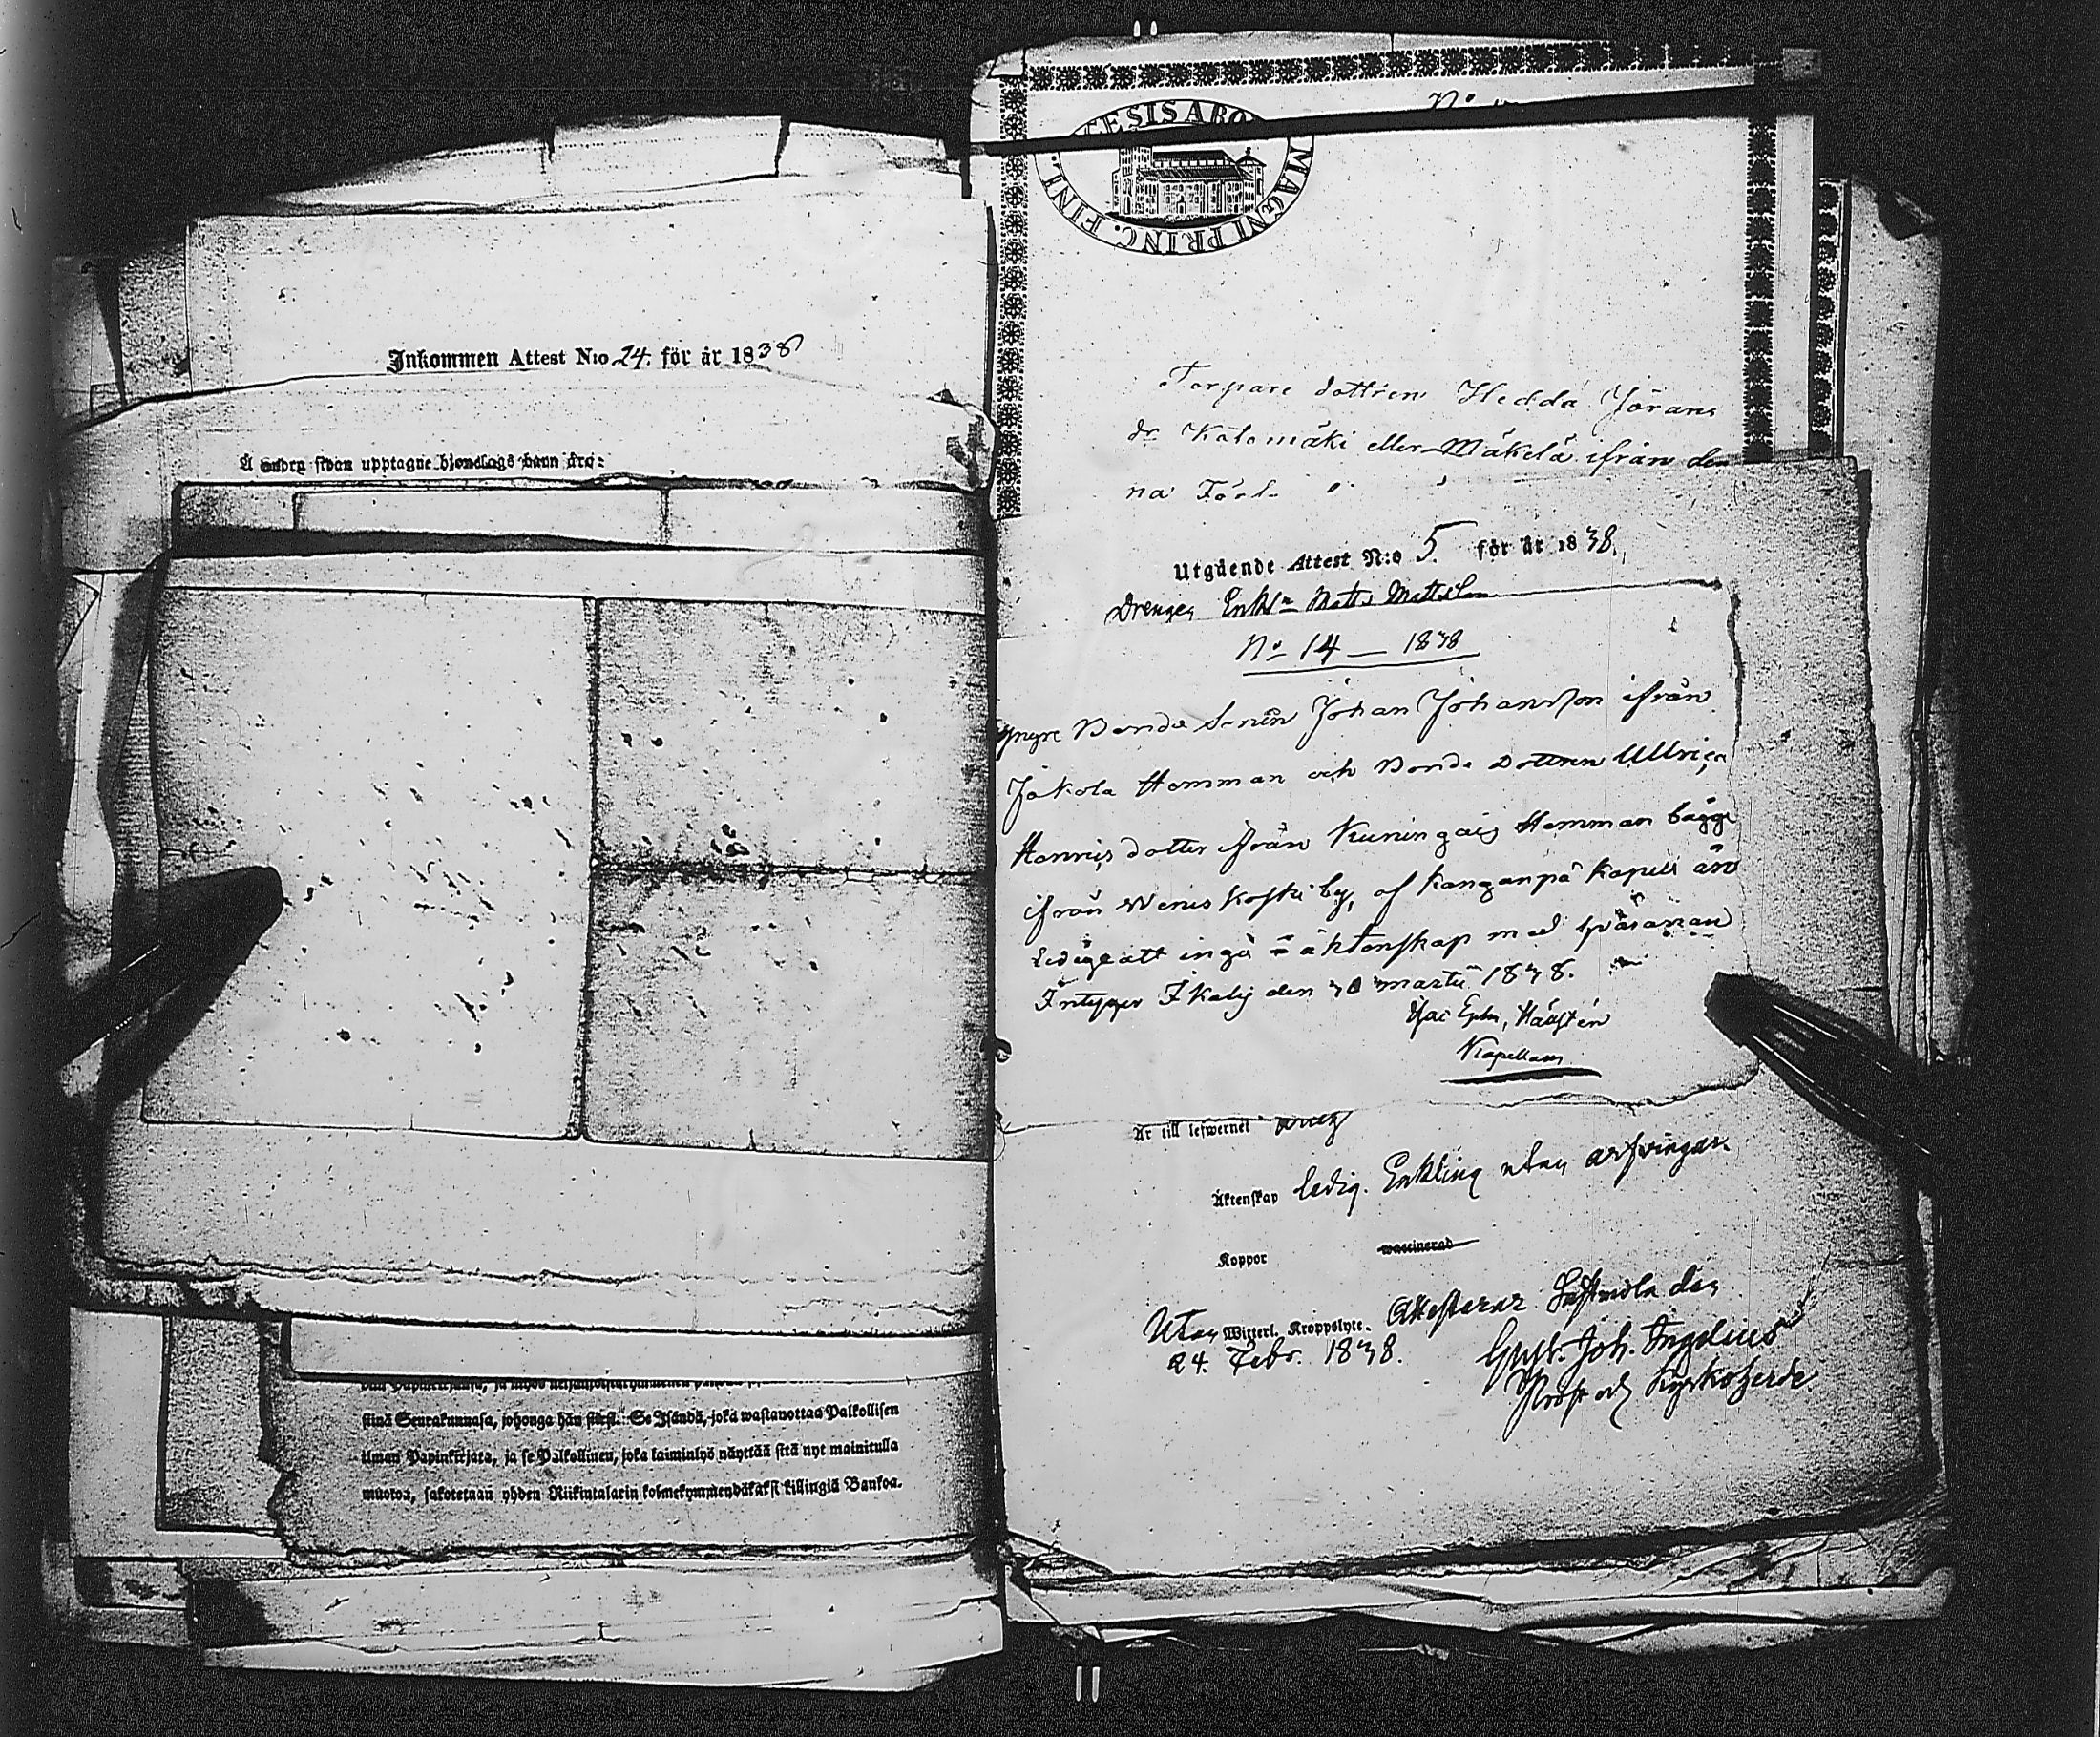 Inkommen Attest N:o 24. för år 1838
A andra sidan upptagne
stinä Seurakunnasa, johonga hän siirsi. Se Isändä, joka wastanottaa Palkollisen
ilman Papinkirjata, ja se Palkollinen, joka laiminlyö näyttää sitä nyt mainitulla
muotoa, sakotetaan yhden Riikintalarin kolmekymmendäkaksi killingiä Bankoa.
ESIS ABO MAGNI PRINC. FINL
N:o
Torpare dottren Hedda Jörans
dr Kalomäki eller Mäkelä ifrån den
na Förs.
Utgående Attest N:o 5. för år 1838.
Drengen Enkl:n Matts Mattsson
N:o 14 — 1838
yngre Bonde Sonen Johan Johansson ifrån
Jakola Hemman och Bonde Dottren Ullrica
Henrics dotter ifrån Kuningais Hemman bägge
ifrån Wenes koski by, af Kanganpä Kapell äro
Ledige att ingå äktenskap med hvarannan
Intygar Ikalis den 30 martii 1838.
Isac Eph.
Kapellan
Är till lefwernet
Äktenskap ledig. Enkling utan arfvingar.
Koppor waccinerad
Utan Witterl. Kroppslyte. Attesterar Lästmola den
24. Febr. 1838. Gust. Joh. Ingelius
Prost och Kyrkoherde